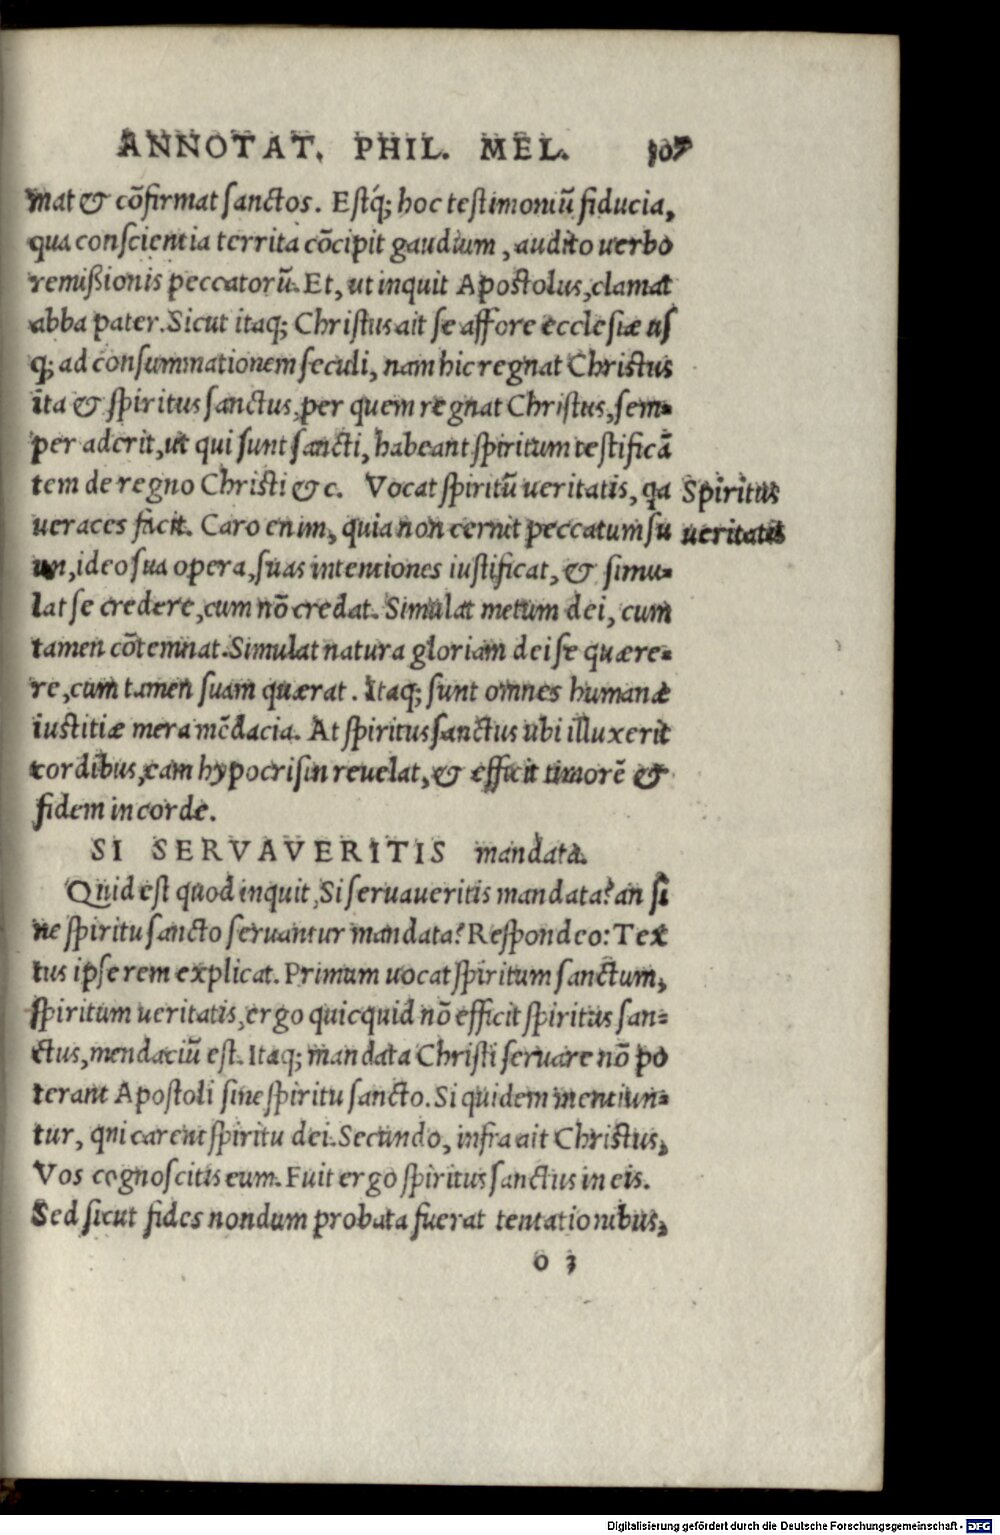 ANNOTAT. PHIL. MEL. 107
mat & cōfirmat sanctos. Estq́; hoc testimoniū fiducia,
qua conscientia territa cōcipit gaudium, audito uerbo
remißionis peccatorū. Et, ut inquit Apostolus, clamat
abba pater. Sicut itaq; Christus ait se affore ecclesiæ us
q; ad consummationem seculi, nam hic regnat Christus
ita & spiritus sanctus, per quem regnat Christus, sem-
per aderit, ut qui sunt sancti, habeant spiritum testificā
tem de regno Christi &c. Vocat spiritū ueritatis, qa
Spiritus
ueraces facit. Caro enim, quia non cernit peccatum su
ueritatis
un, ideo sua opera, suas intentiones iustificat, & simu-
lat se credere, cum nō credat. Simulat metum dei, cum
tamen cōtemnat. Simulat natura gloriam dei se quære-
re, cum tamen suam quærat. Itaq; sunt omnes humanæ
iustitiæ mera mēdacia. At spiritus sanctus ubi illuxerit
cordibus, eam hypocrisin reuelat, & efficit timorē &
fidem in corde.
SI SERVAVERITIS mandata.
Quid est quod inquit, Si seruaueritis mandata? an si
ne spiritu sancto seruantur mandata? Respondeo: Tex
tus ipse rem explicat. Primum uocat spiritum sanctum,
spiritum ueritatis, ergo quicquid nō efficit spiritus san-
ctus, mendaciū est. Itaq; mandata Christi seruare nō po
terant Apostoli sine spiritu sancto. Si quidem mentiun-
tur, qni carent spiritu dei. Secundo, infra ait Christus,
Vos cognoscitis eum. Fuit ergo spiritus sanctus in eis.
Sed sicut fides nondum probata fuerat tentationibus,
o 3
Digitalisierung gefördert durch die Deutsche Forschungsgemeinschaft - DFG